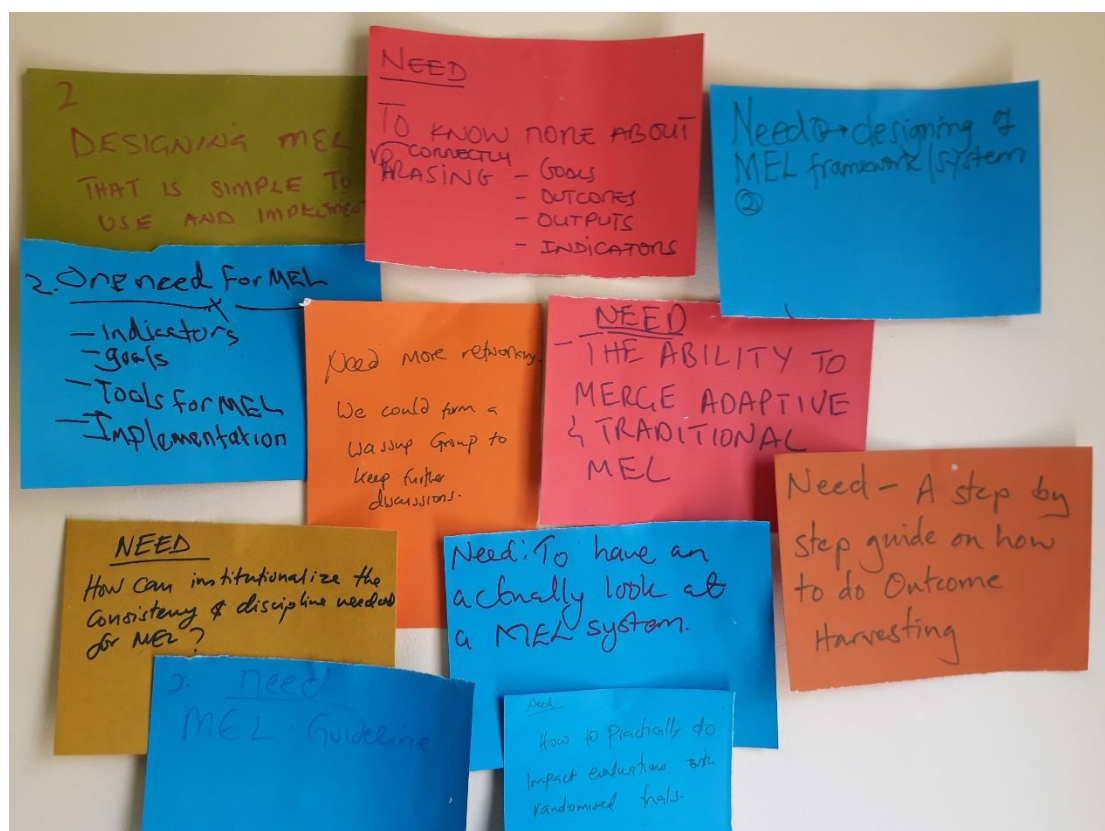 2
DESIGNING MEL
THAT IS SIMPLE TO
USE AND IMPLEMENT
NEED
TO KNOW MORE ABOUT
CORRECTLY
PHRASING – GOALS
– OUTCOMES
– OUTPUTS
– INDICATORS
Need → designing of
MEL framework/system
②
2. One need for MEL
– Indicators
– goals
– Tools for MEL
– Implementation
Need more networking.
We could form a
wassup Group to
keep further
discussions.
NEED
– THE ABILITY TO
MERGE ADAPTIVE
& TRADITIONAL
MEL
Need – A step by
step guide on how
to do Outcome
Harvesting
NEED
How can institutionalize the
consistency & discipline needed
for MEL?
Need: To have an
actually look at
a MEL system.
2. need
MEL Guideline
Need
How to Practically do
impact evaluations with
randomised trials.